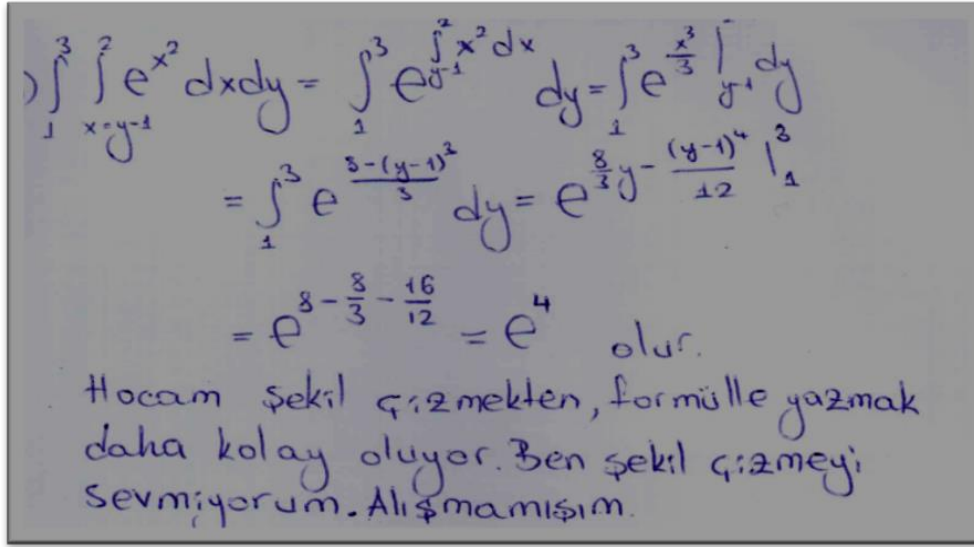 ) ∫₁³ ∫ₓ₌ᵧ₋₁² e^(x²) dxdy = ∫₁³ e^(∫_(y-1)^2 x² dx) dy = ∫₁³ e^(x³/3) |_(y-1)^2 dy
= ∫₁³ e^((8-(y-1)³)/3) dy = e^((8/3)y - (y-1)⁴/12) |₁³
= e^(8 - 8/3 - 16/12) = e⁴ olur.
Hocam şekil çizmekten, formülle yazmak
daha kolay oluyor. Ben şekil çizmeyi
sevmiyorum. Alışmamışım.